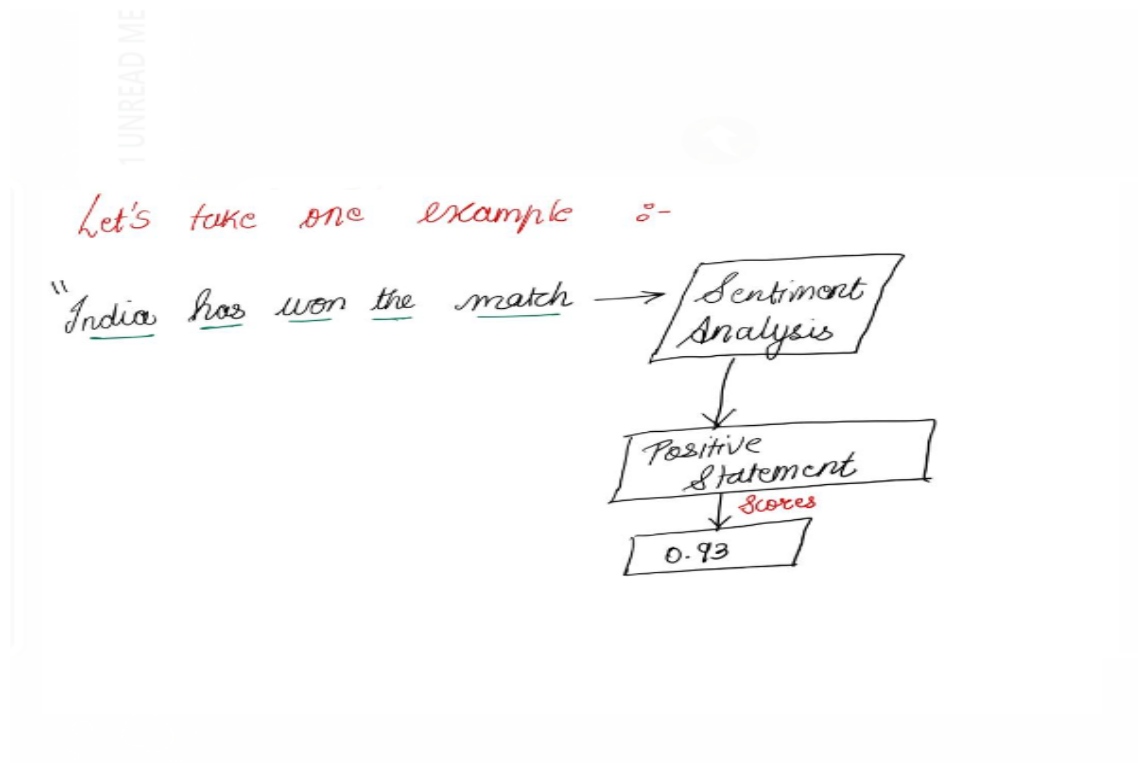 1 UNREAD ME
Let's take one example :-
"India has won the match
Sentiment
Analysis
Positive
Statement
Scores
0.93